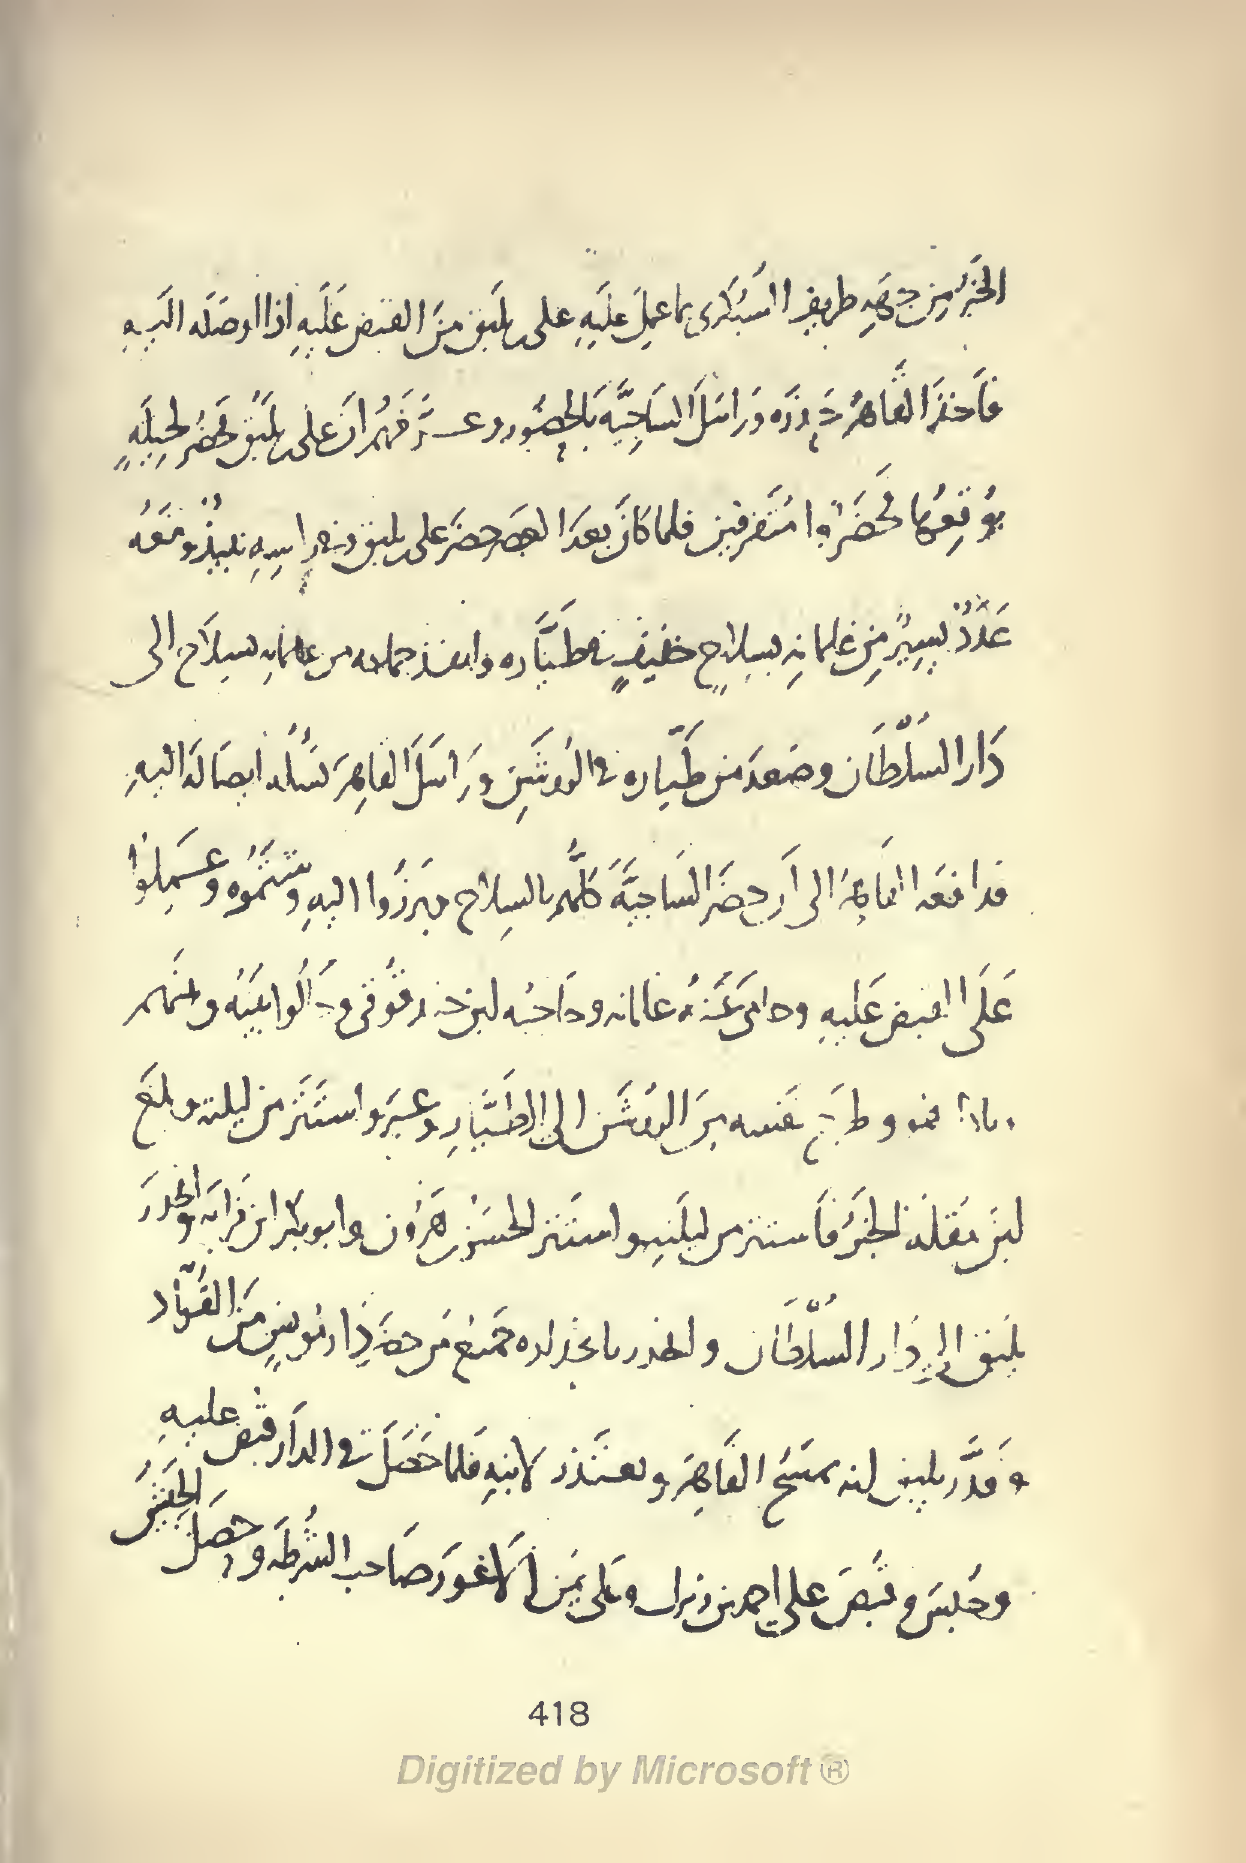 الخَبَرُ مِن جِهَةِ طريف السُبكَرى بما عَمِلَ عَلَيهِ على بن يلبق مِنَ القبض عَلَيهِ اذا اوصَلَه اليهِ
فاَخذَ القَاهرُ حَذره وَراسَلَ السَاجيَّة بالحضُور وعرَّفَهُم اَن على بن يلبَق يَحضُر لحِيلَةٍ
يُوقِعُها فحَضَروا مُتفرقين فلما كانَ بعدَ العصر حضَر على بن يلبق وفى راسِهِ نبيذٌ ومَعَهُ
عَدَدٌ يسيرٌ مِن غلمانِهِ بسِلاحٍ خفيفٍ فى طَيَّاره وانفذ جماعه من غلمانه بسلاح الى
دَار السُلطَان وصَعدَ من طَيّاره فى الروشَنِ ورَاسَلَ القاهِرَ يَسئلُه ايصَالَه اليهِ
فدافعَه القاهرُ الى اَن حضَرَ السَاجيَّةُ كلُّهم بالسِلاح فبرَزُوا اليهِ وشتمُوه وعَملُوا
عَلَى القبض عَليهِ وحامَى عَنهُ غلمانه وصَاحبُه ابن خندقُوقى وحَالُوا بينَهُ وبينَهم
وطرَح نَفسه مِنَ الروشَن الى الطَيَّارِ وعبَر واستَتَر من ليلته وبلغَ
ابنَ مُقلَة الخبَرُ فاَستتر من ليلَتِهِ واستَتر الحسَنُ بن هَرون وابو بكر ابن قرابَه وانحدَرَ
يلبق الى دَار السُلطَان وانحدر بانحداره جَميعُ مَن حضَر دَار مُونسٍ مِنَ القُوّاد
وقدَّر يلبق انه يمسَحُ القَاهِرَ ويعتَذر لابنِهِ فلما حَصَلَ فى الدَار قبض عليهِ
وحُبِسَ وقُبِضَ على احمد بن زيرك وعَلى يُمن الاَعور صَاحب الشُرطَه وحصَل الجَيشُ
418
Digitized by Microsoft ®